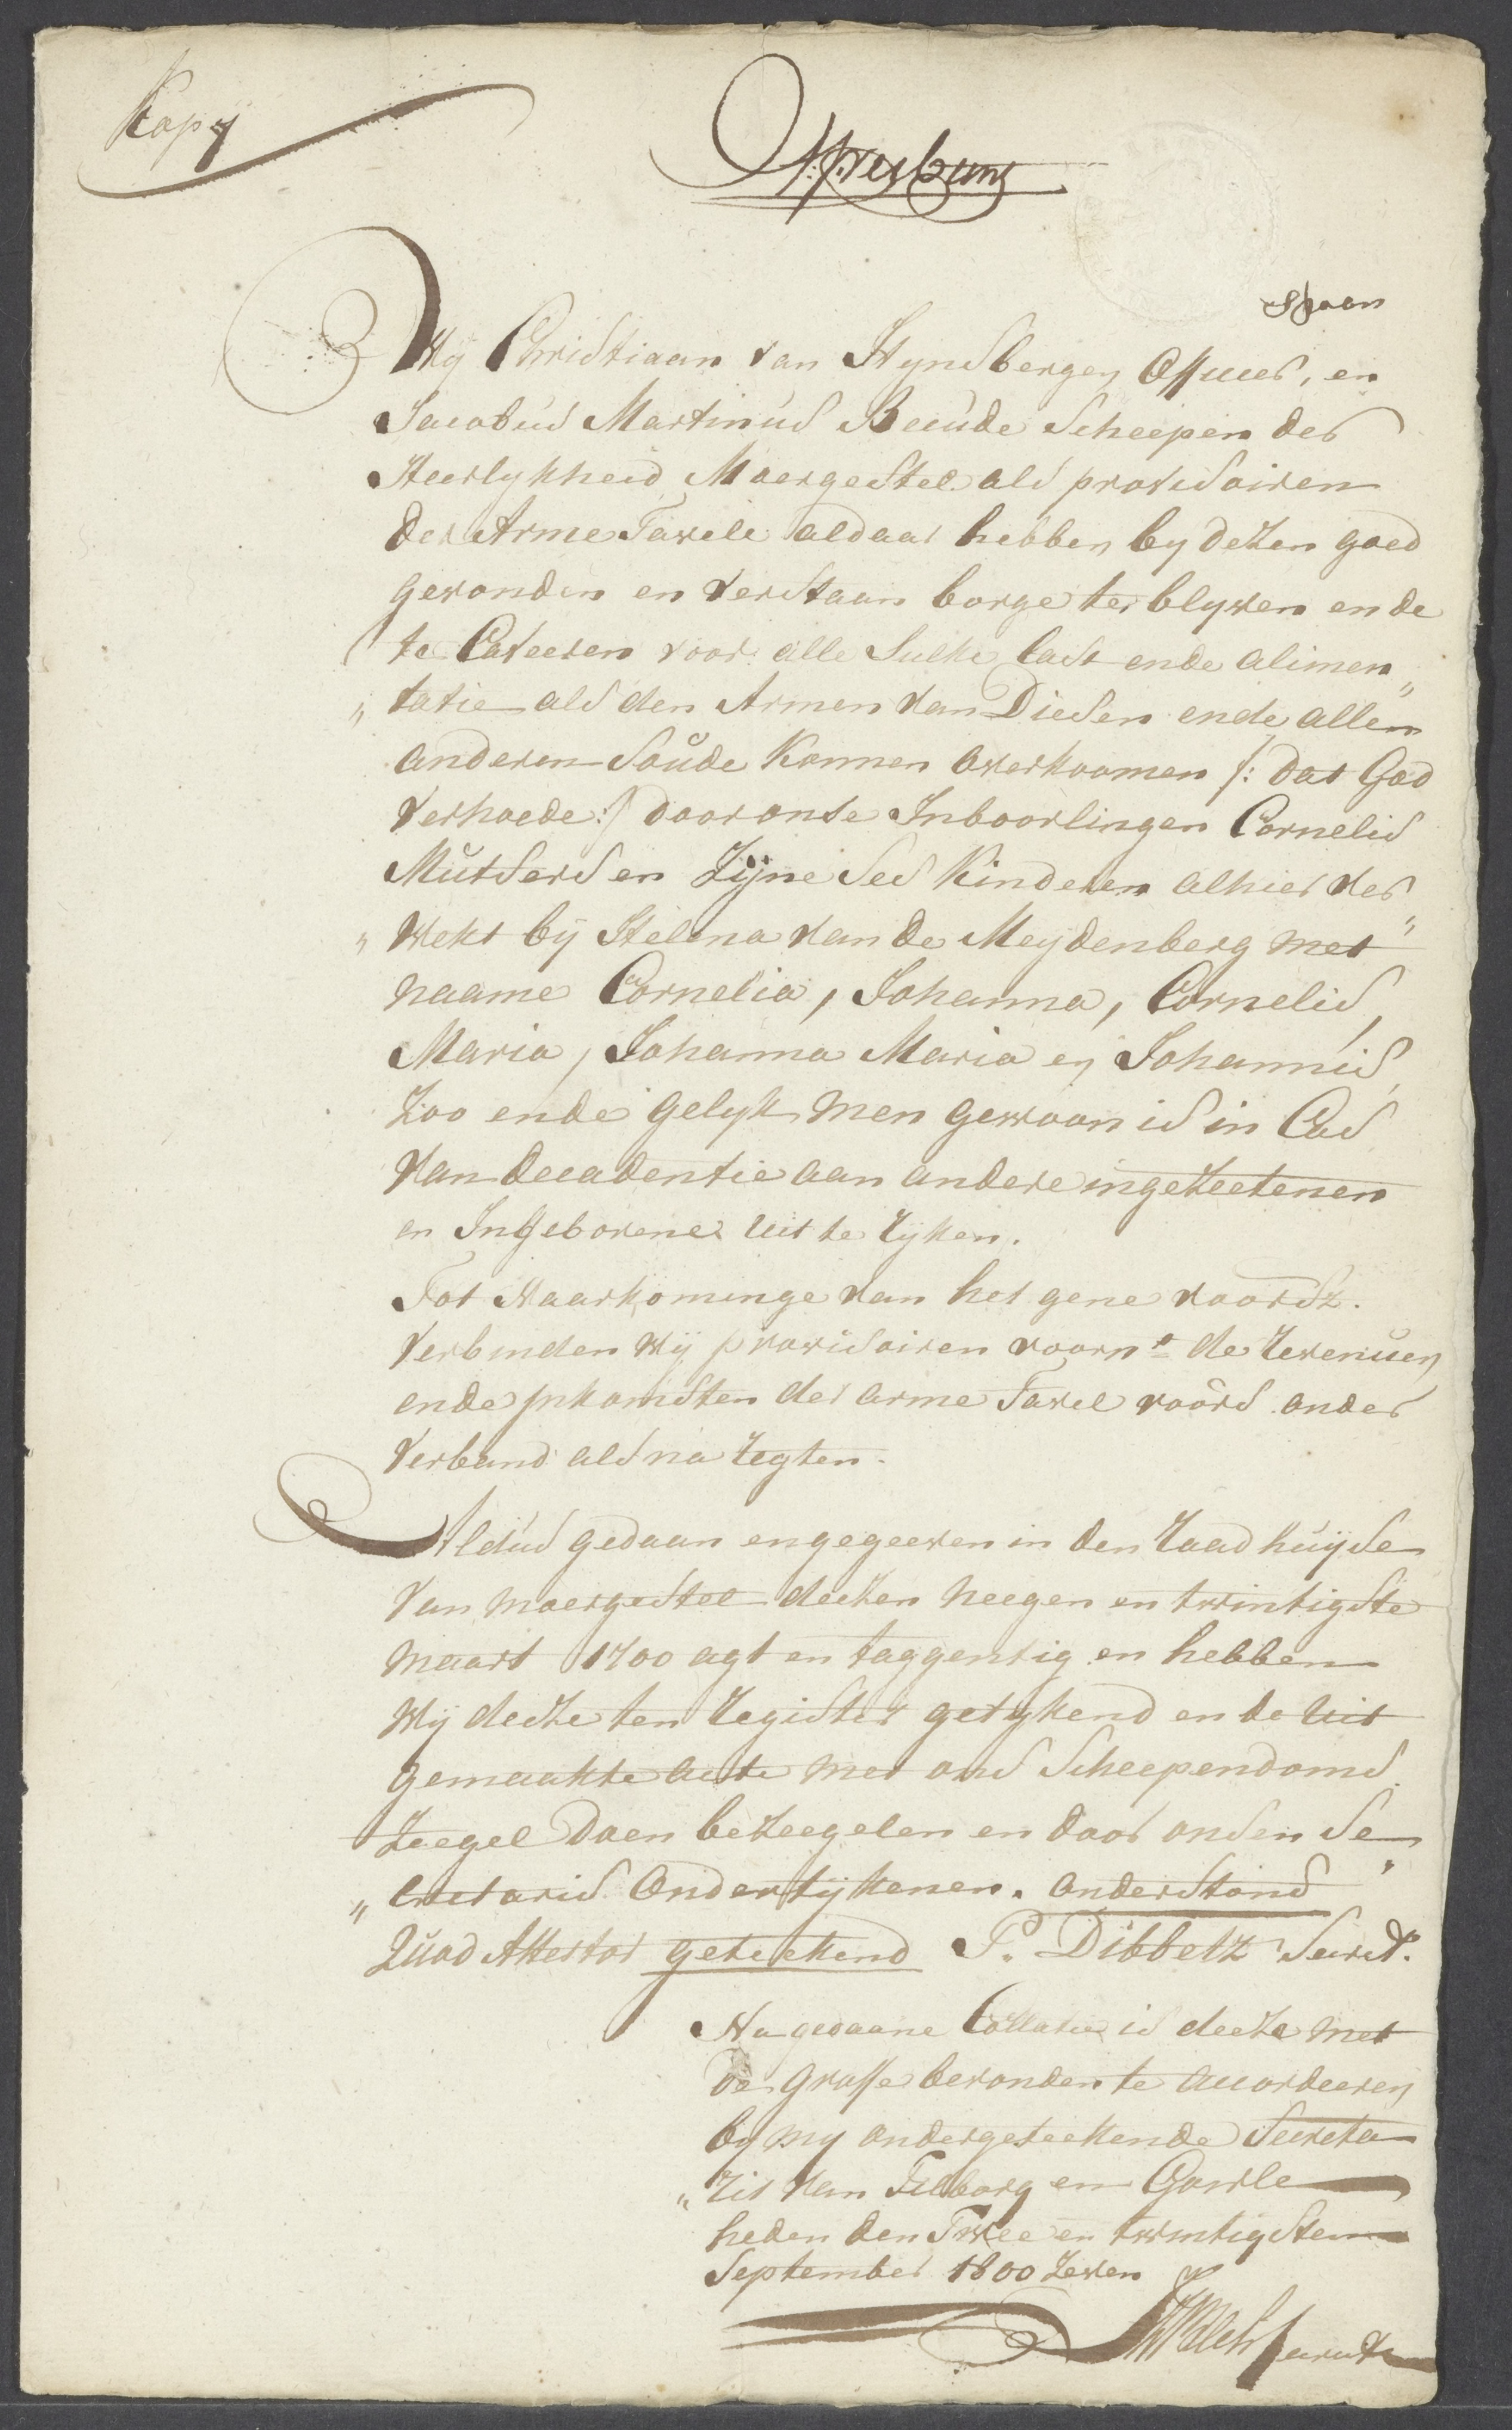 Kopij
Spaan
Wij Christiaan van Hijndbergen Officier, en
Jacobus Martinus Beeude Scheepen der
Heerlykheid Moergestel als provisoiren
der Arme Tavele aldaar hebben by dezen goed
gevonden en verstaan borge ter blyven ende
te Caveeren voor alle sulke last ende alimen„
„tatie als den Armen van Diesen ende allen
anderen soude konnen overkoomen /: dat God
verhoede :/ door onse Inboorlingen Cornelis
Mutsers en Zijne ses kinderen alhier ver„
„wekt bij Helena van de Meijdenberg met
naame Cornelia, Johanna, Cornelis,
Maria, Johanna Maria en Johannis,
Zoo ende gelyk men gewoon is in Cas
van decadentie aan andere ingezeetenen
en Ingeborene uit te ryken.
Tot Naarkominge van het gene voorsz.
verbinden wij provisoiren voorn.e de revenuen
ende inkomsten der arme Tavel voors onder
verband als na regten.
Aldus gedaan en gegeeven in den raadhuijse
van moergestel deezen neegen en twintigste
maart 1700 agt en taggentig en hebben
wij deeze ten register getykend en de uit
gemaakte acte met ons Scheependoms
zeegel doen bezeegelen en door onsen Se„
„cretaris Ondertijkenen. onderstond
Quod Attestor geteekend P. Dibbetz Secret.
Na gedaane Collatie is deeze met
de grosse bevonden te accordeeren
by my ondergeteekende Secreta
„ris van Tilborg en Goirle
heden den Twee en twintigsten
September 1800 zeven